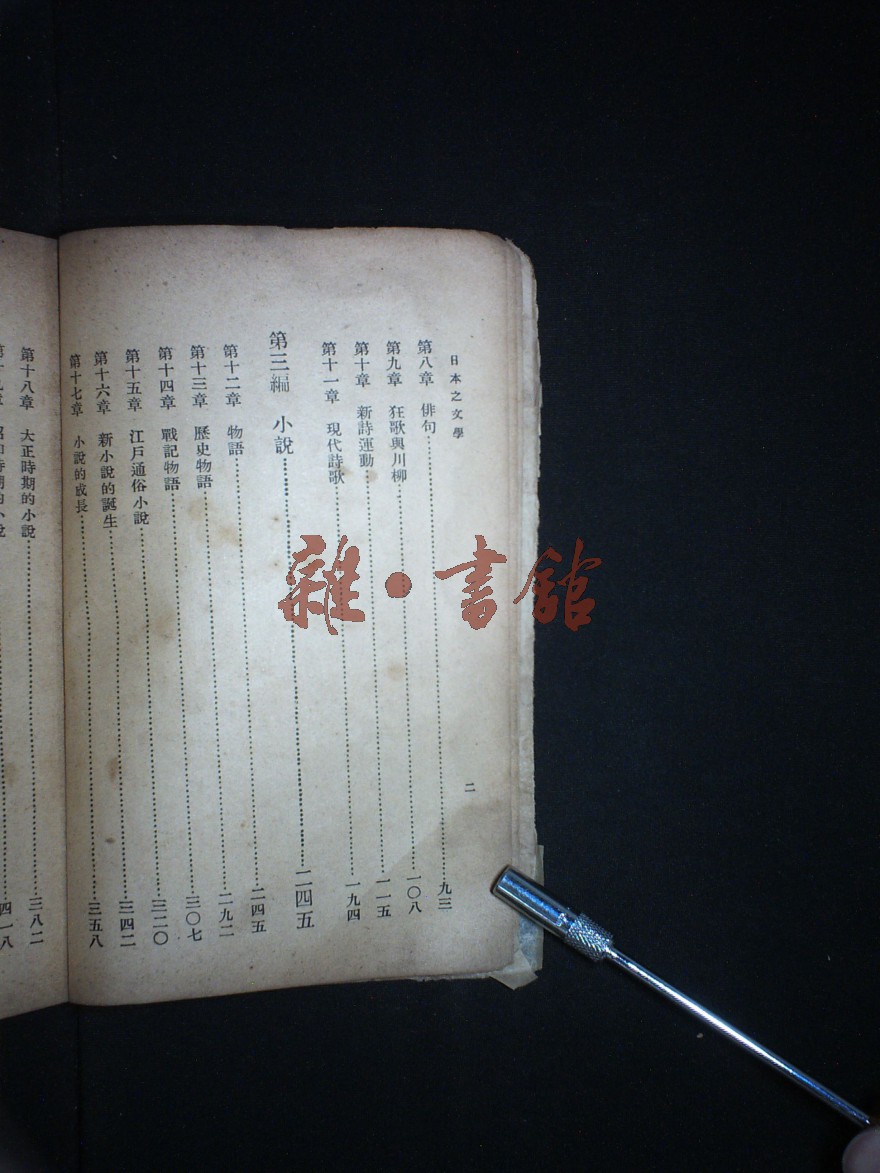 日本之文學
二
第八章 俳句……九三
第九章 狂歌與川柳……一〇八
第十章 新詩運動……一一五
第十一章 現代詩歌……一九四
第三編 小說……二四五
第十二章 物語……二四五
第十三章 歷史物語……二九二
第十四章 戰記物語……三〇七
第十五章 江戶通俗小說……三二〇
第十六章 新小說的誕生……三四二
第十七章 小說的成長……三五八
第十八章 大正時期的小說……三八二
時期的小說……四一八
雜·書館